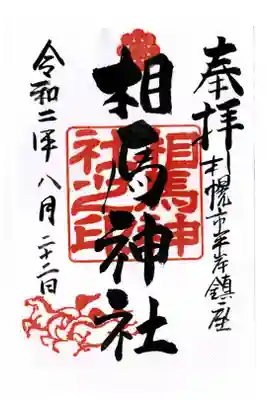 奉拝
札幌市平岸鎮座
相馬神社
相馬神社之印
令和二年八月二十二日